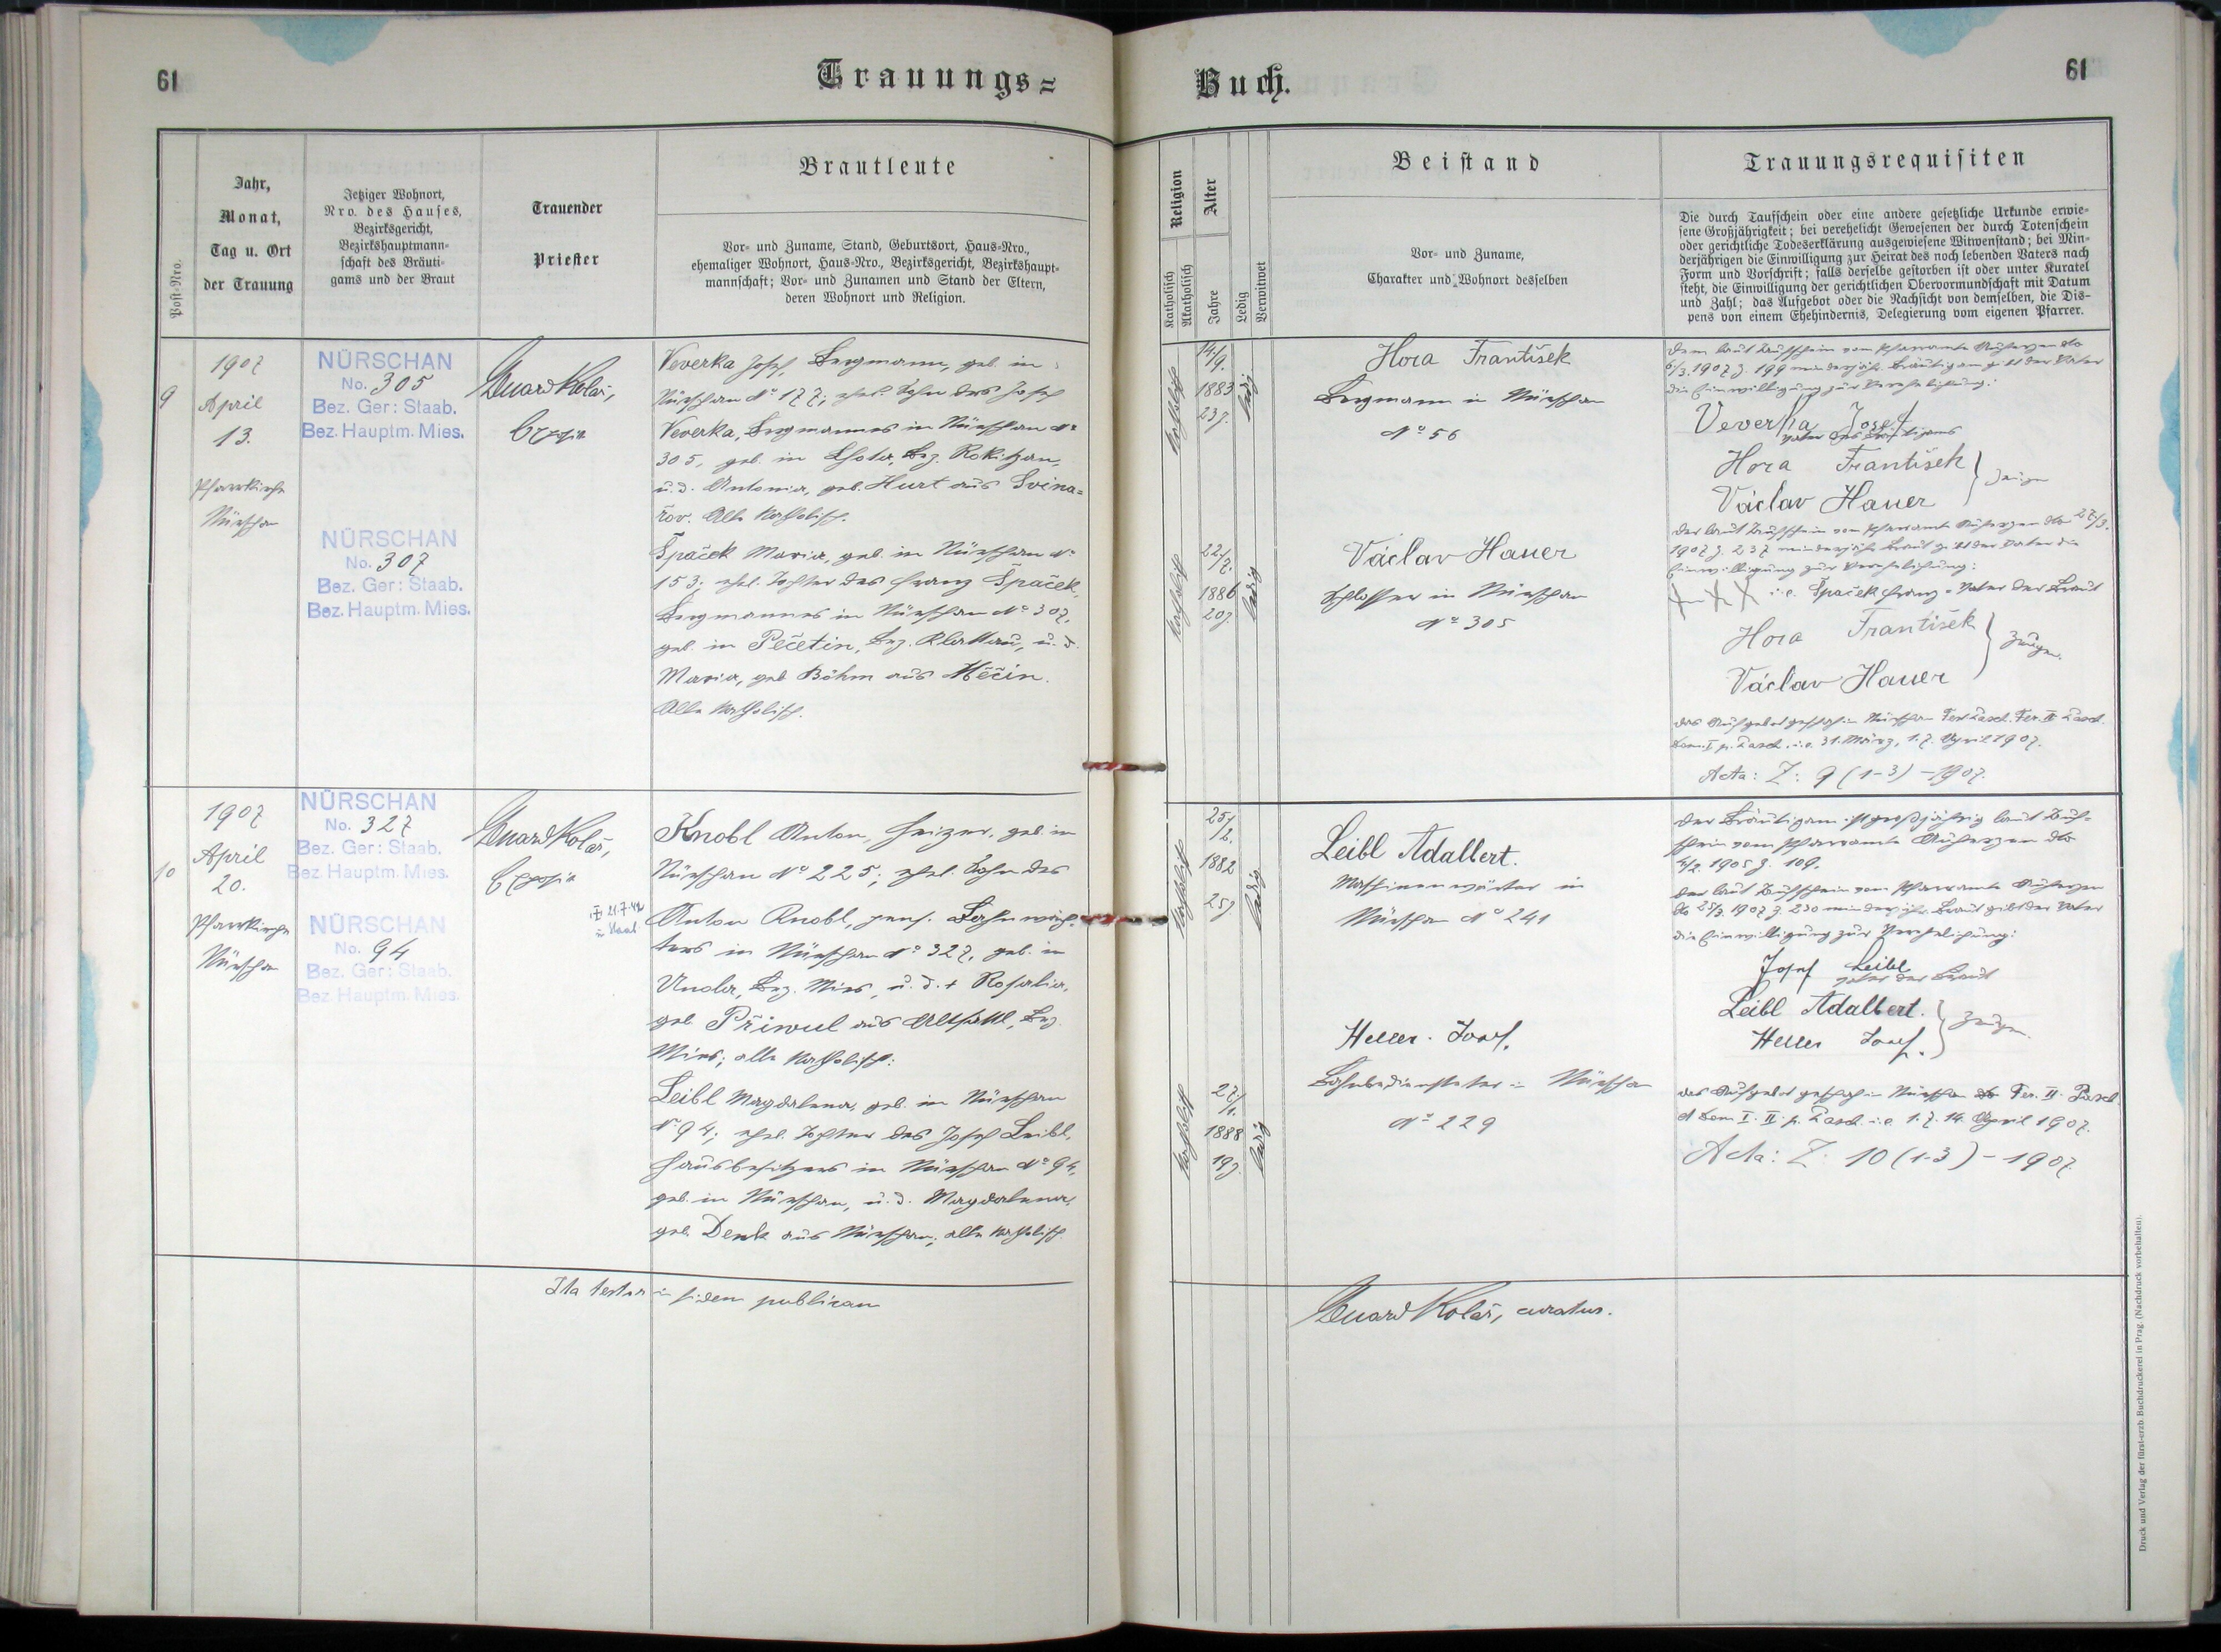 61
Trauungs=
Post-Nro.
Jahr,
Monat,
Tag u. Ort
der Trauung
Jetziger Wohnort,
Nro. des Hauses,
Bezirksgericht,
Bezirkshauptmann-
schaft des Bräuti-
gams und der Braut
Trauender
Priester
Brautleute
Vor- und Zuname, Stand, Geburtsort, Haus-Nro.,
ehemaliger Wohnort, Haus-Nro., Bezirksgericht, Bezirkshaupt-
mannschaft; Vor- und Zunamen und Stand der Eltern,
deren Wohnort und Religion.
9
1907
April
13.
Pfarrkirche
Nürschan
NÜRSCHAN
No. 305
Bez. Ger: Staab.
Bez. Hauptm. Mies.
NÜRSCHAN
No. 307
Bez. Ger: Staab.
Bez. Hauptm. Mies.
Eduard Kolář,
Exposit
Veverka Josef, Bergmann, geb. in
Nürschan No 177; ehel. Sohn des Josef
Veverka, Bergmannes in Nürschan No
305, geb. in Lhota, Bez. Rokitzan,
u. d. Antonia, geb. Hurt aus Svina=
řov. Alle katholisch.
Špaček Maria, geb. in Nürschan No
153; ehel. Tochter des Franz Špaček,
Bergmannes in Nürschan No 307,
geb. in Pečetin, Bez. Klattau, u. d.
Maria, geb. Böhm aus Měčin.
Alle katholisch.
10
1907
April
20.
Pfarrkirche
Nürschan
NÜRSCHAN
No. 327
Bez. Ger: Staab.
Bez Hauptm. Mies.
NÜRSCHAN
No. 94
Bez. Ger: Staab.
Bez Hauptm. Mies.
Eduard Kolář,
Exposit
21.7.42
in Staab
Knobl Anton, Heizer, geb. in
Nürschan No 225; ehel. Sohn des
Anton Knobl, pens. Bahnwäch=
ters in Nürschan No 327, geb. in
Bez. Mies, u. d. + Rosalia,
geb. Přiwul aus Bez.
Mies; alle katholisch.
Leibl Magdalena, geb. in Nürschan
No 94; ehel. Tochter des Josef Leibl,
Hausbesitzers in Nürschan No 94,
geb. in Nürschan, u. d. Magdalena,
geb. Denk aus Nürschan; alle katholisch
Ita testor in fidem publicam
Buch.
61
Religion
Katholisch
Akatholisch
Alter
Jahre
Ledig
Verwitwet
Beistand
Vor- und Zuname,
Charakter und Wohnort desselben
Trauungsrequisiten
Die durch Taufschein oder eine andere gesetzliche Urkunde erwie-
sene Großjährigkeit; bei verehelicht Gewesenen der durch Totenschein
oder gerichtliche Todeserklärung ausgewiesene Witwenstand; bei Min-
derjährigen die Einwilligung zur Heirat des noch lebenden Vaters nach
Form und Vorschrift; falls derselbe gestorben ist oder unter Kuratel
steht, die Einwilligung der gerichtlichen Obervormundschaft mit Datum
und Zahl; das Aufgebot oder die Nachsicht von demselben, die Dis-
pens von einem Ehehindernis, Delegierung vom eigenen Pfarrer.
katholisch
14./9.
1883
23 J.
ledig
Hora František
Bergmann in Nürschan
No 56
Dem laut Taufschein vom Pfarramte Auherzen dto
6/3. 1907 Z. 199 minderjähr. Bräutigam gibt der Vater
die Einwilligung zur Verehelichung:
Veverka Josef
Vater des Bräutigams
Hora František
Václav Hauer
Zeugen
katholisch
22/7.
1886
20 J.
ledig
Václav Hauer
Schlosser in Nürschan
No 305
Der laut Taufschein vom Pfarramte Auherzen dto 27/3.
1907 Z. 237 minderjähr. Braut gibt der Vater die
Einwilligung zur Verehelichung:
XXX i. e. Špaček Franz - Vater der Braut
Hora František
Václav Hauer
Zeugen.
Das Aufgebot geschah in Nürschan Fer. Pasch. Fer. II Pasch.
Dom. I p. Pasch. i. e. 31. März, 1. 7. April 1907.
Acta: Z: 9 (1-3) - 1907.
katholisch
25/2.
1882
25 J.
ledig
Leibl Adalbert.
Maschinenwärter in
Nürschan No 241
Der Bräutigam ist großjährig laut Tauf=
schein vom Pfarramte Auherzen dto
1905 Z. 109.
Der laut Taufschein vom Pfarramte Auherzen
dto 25/3. 1907 Z. 230 minderjähr. Braut gibt der Vater
die Einwilligung zur Verehelichung:
Josef Leibl
Vater der Braut
Leibl Adalbert.
Heller Josef.
Zeugen.
katholisch
27/1.
1888
19 J.
ledig
Heller Josef.
Bahnbediensteter in Nürschan
No 229
Das Aufgebot geschah in Nürschan Fer. II. Pasch.
et Dom I. II. p. Pasch. i. e. 1. 7. 14. April 1907.
Acta: Z. 10 (1-3) - 1907.
Eduard Kolář, curatus.
Druck und Verlag der fürst-erzb. Buchdruckerei in Prag. (Nachdruck vorbehalten).